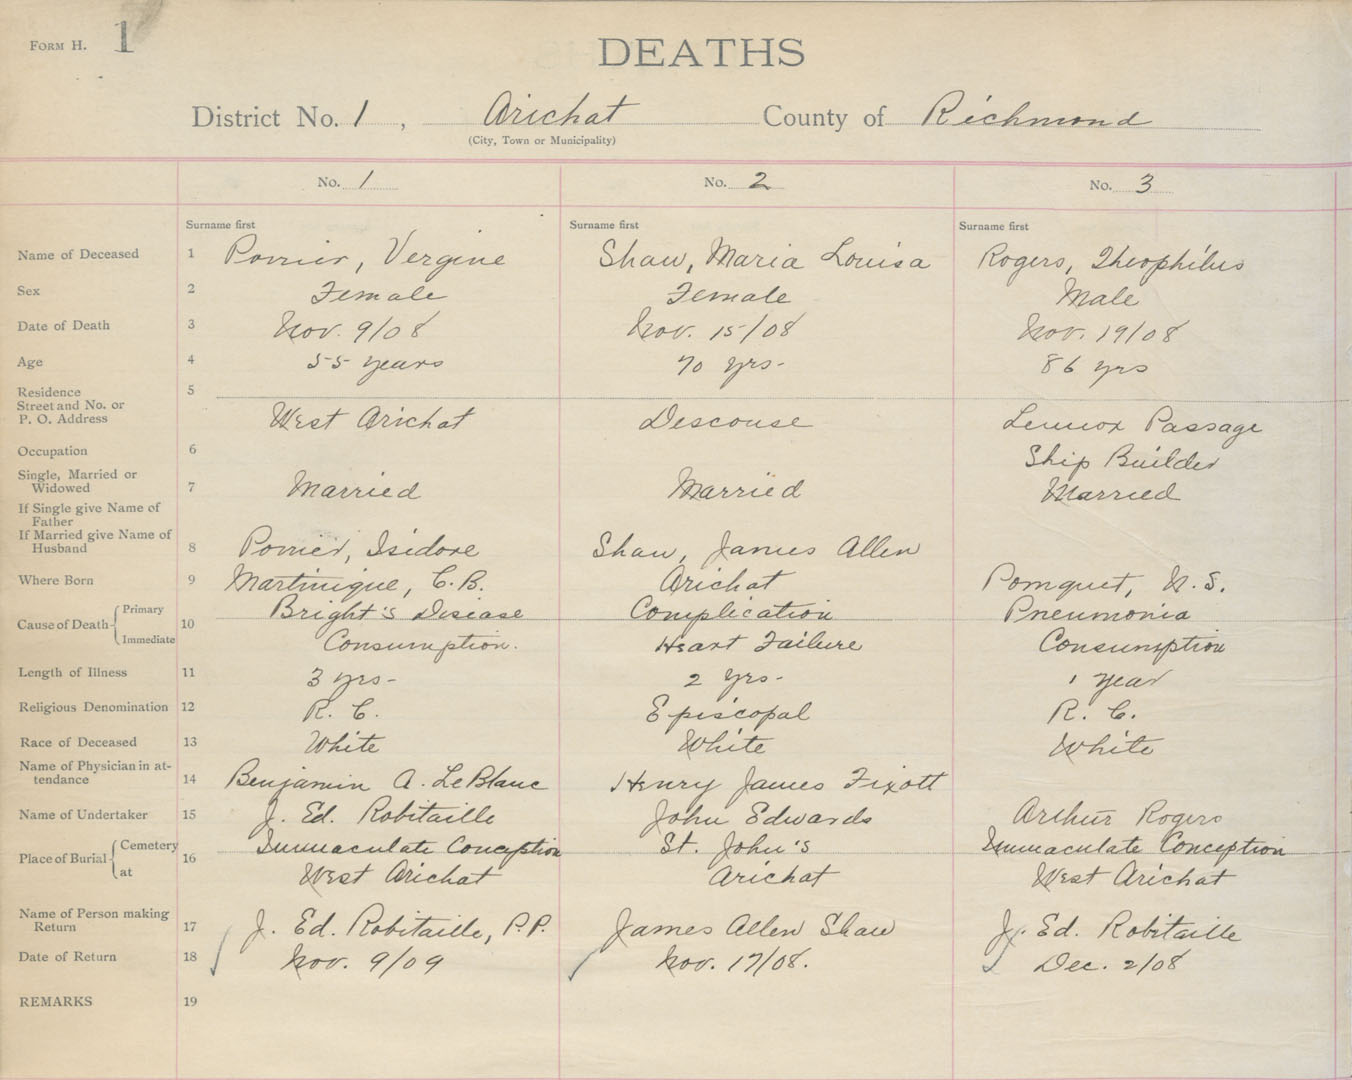 FORM H. 1
DEATHS
District No. 1, Arichat County of Richmond
(City, Town or Municipality)
No. 1 No. 2 No. 3
Surname first Surname first Surname first
Name of Deceased 1 Poirrier, Vergine Shaw, Maria Louisa Rogers, Theophilus
Sex 2 Female Female Male
Date of Death 3 Nov. 9/08 Nov. 15/08 Nov. 19/08
Age 4 55 years 70 yrs. 86 yrs
Residence 5
Street and No. or
P. O. Address West Arichat Descouse Lennox Passage
Occupation 6 Ship Builder
Single, Married or
Widowed 7 Married Married Married
If Single give Name of
Father
If Married give Name of
Husband 8 Poirrier, Isidore Shaw, James Allen
Where Born 9 Martinique, C.B. Arichat Pomquet, N.S.
Cause of Death 10 Primary Bright's Disease Complication Pneumonia
Immediate Consumption. Heart Failure Consumption
Length of Illness 11 3 yrs- 2 yrs- 1 year
Religious Denomination 12 R. C. Episcopal R. C.
Race of Deceased 13 White White White
Name of Physician in at-
tendance 14 Benjamin A. LeBlanc Henry James Fixott
Name of Undertaker 15 J. Ed. Robitaille John Edwards Arthur Rogers
Place of Burial 16 Cemetery Immaculate Conception St. John's Immaculate Conception
at West Arichat Arichat West Arichat
Name of Person making
Return 17 J. Ed. Robitaille, P.P. James Allen Shaw J. Ed. Robitaille
Date of Return 18 Nov. 9/09 Nov. 17/08. Dec. 2/08
REMARKS 19